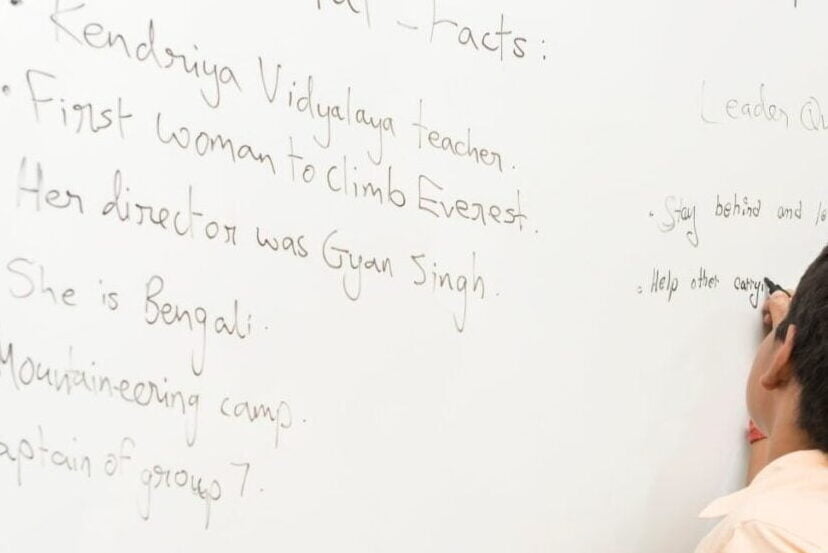 Facts:
Kendriya Vidyalaya teacher.
First woman to climb Everest.
Her director was Gyan Singh.
She is Bengali.
Mountaineering camp.
of group 7.
Leader
Stay behind and
Help other